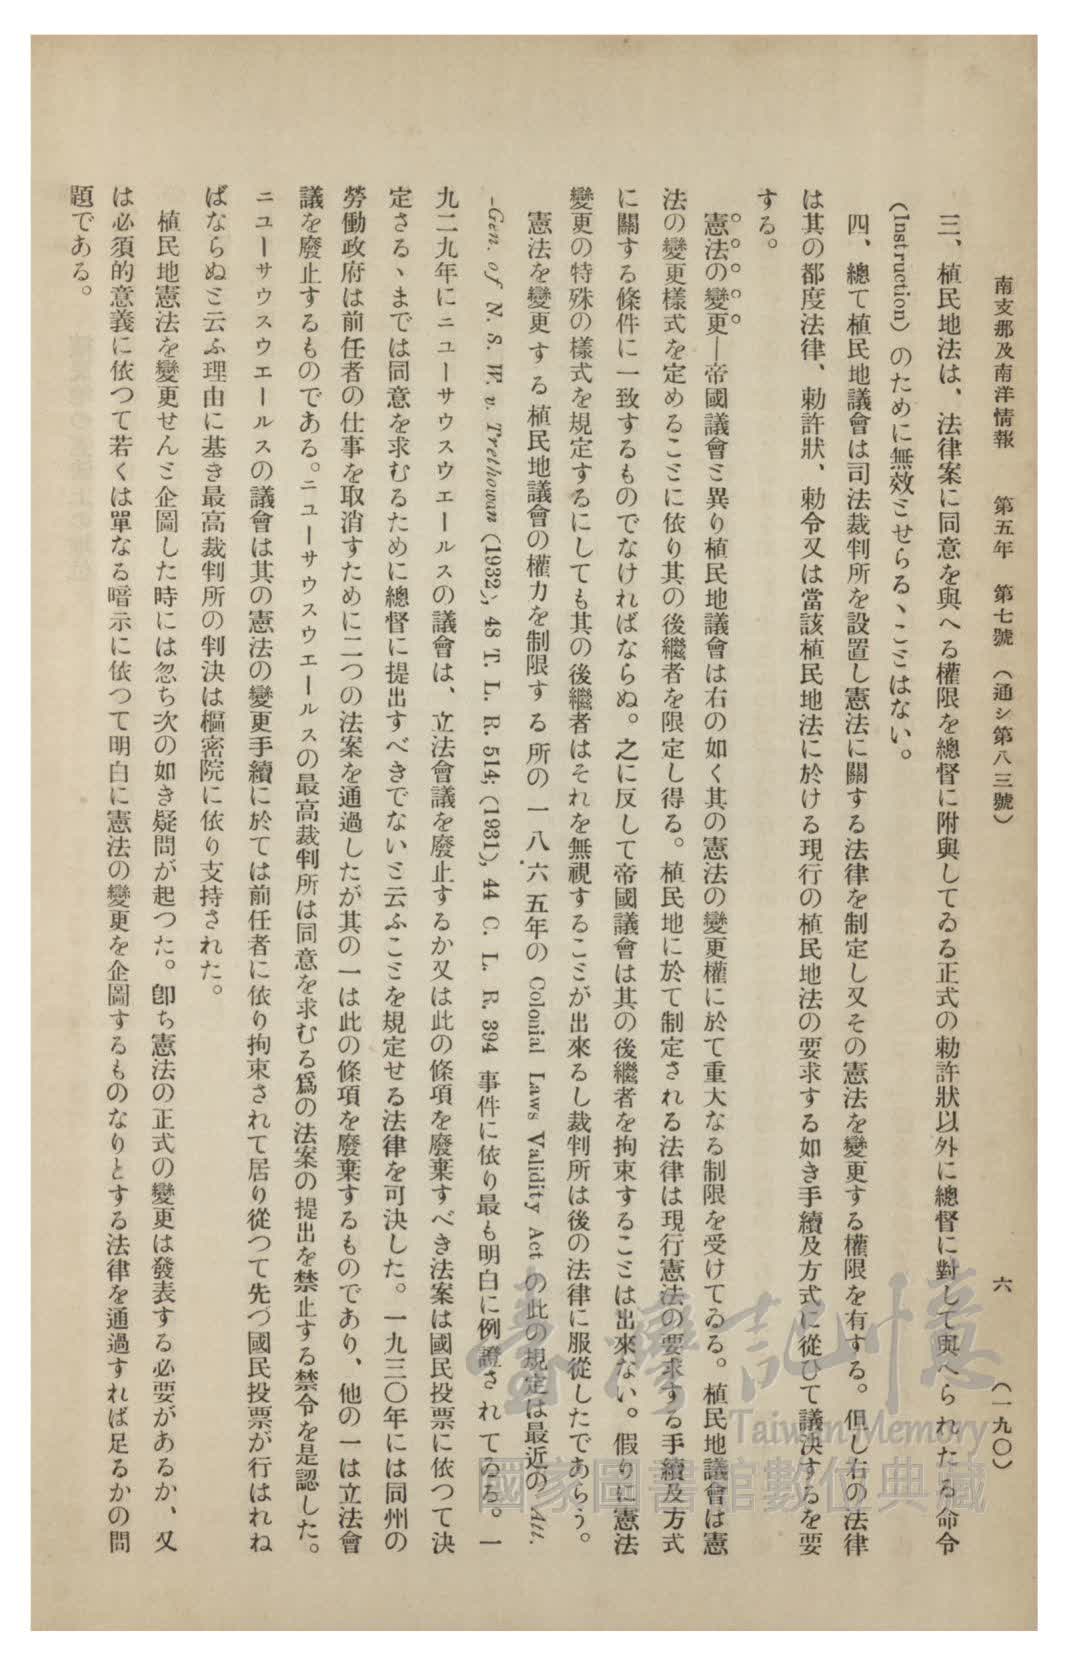 南支那及南洋情報　第五年　第七號　（通シ第八三號）　六　（一九〇）
三、植民地法は、法律案に同意を與へる權限を總督に附與してゐる正式の勅許狀以外に總督に對して與へられたる命令
(Instruction) のために無效ミせらるゝこミはない。
四、總て植民地議會は司法裁判所を設置し憲法に關する法律を制定し又その憲法を變更する權限を有する。但し右の法律
は其の都度法律、勅許狀、勅令又は當該植民地法に於ける現行の植民地法の要求する如き手續及方式に從ひて議決するを要
する。
憲法の變更―帝國議會ミ異り植民地議會は右の如く其の憲法の變更權に於て重大なる制限を受けてゐる。植民地議會は憲
法の變更樣式を定めるこミに依り其の後繼者を限定し得る。植民地に於て制定される法律は現行憲法の要求する手續及方式
に關する條件に一致するものでなければならぬ。之に反して帝國議會は其の後繼者を拘束するこミは出來ない。假りに憲法
變更の特殊の樣式を規定するにしても其の後繼者はそれを無視するこミが出來るし裁判所は後の法律に服從したであらう。
憲法を變更する植民地議會の權力を制限する所の一八六五年の Colonial Laws Validity Act の此の規定は最近の Att.
-Gen. of N. S. W. v. Trethowan (1932), 48 T. L. R. 514; (1931), 44 C. L. R. 394 事件に依り最も明白に例證されてゐる。一
九二九年にニューサウスウエールスの議會は、立法會議を廢止するか又は此の條項を廢棄すべき法案は國民投票に依つて決
定さるゝまでは同意を求むるために總督に提出すべきでないミ云ふこミを規定せる法律を可決した。一九三〇年には同州の
勞働政府は前任者の仕事を取消すために二つの法案を通過したが其の一は此の條項を廢棄するものであり、他の一は立法會
議を廢止するものである。ニューサウスウエールスの最高裁判所は同意を求むる爲の法案の提出を禁止する禁令を是認した。
ニューサウスウエールスの議會は其の憲法の變更手續に於ては前任者に依り拘束されて居り從つて先づ國民投票が行はれね
ばならぬミ云ふ理由に基き最高裁判所の判決は樞密院に依り支持された。
植民地憲法を變更せんミ企圖した時には忽ち次の如き疑問が起つた。卽ち憲法の正式の變更は發表する必要があるか、又
は必須的意義に依つて若くは單なる暗示に依つて明白に憲法の變更を企圖するものなりとする法律を通過すれば足るかの問
題である。
臺灣記憶
Taiwan Memory
國家圖書館數位典藏